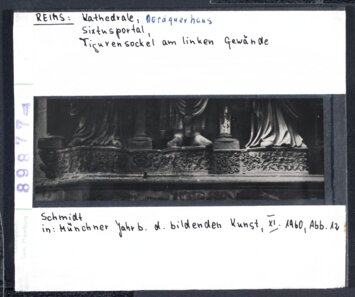 REIMS: Kathedrale, Nordquerhaus
Sixtusportal,
Figurensockel am linken Gewände
89877
Schmidt
in: Münchner Jahrb. d. bildenden Kunst, XI. 1960, Abb. 12